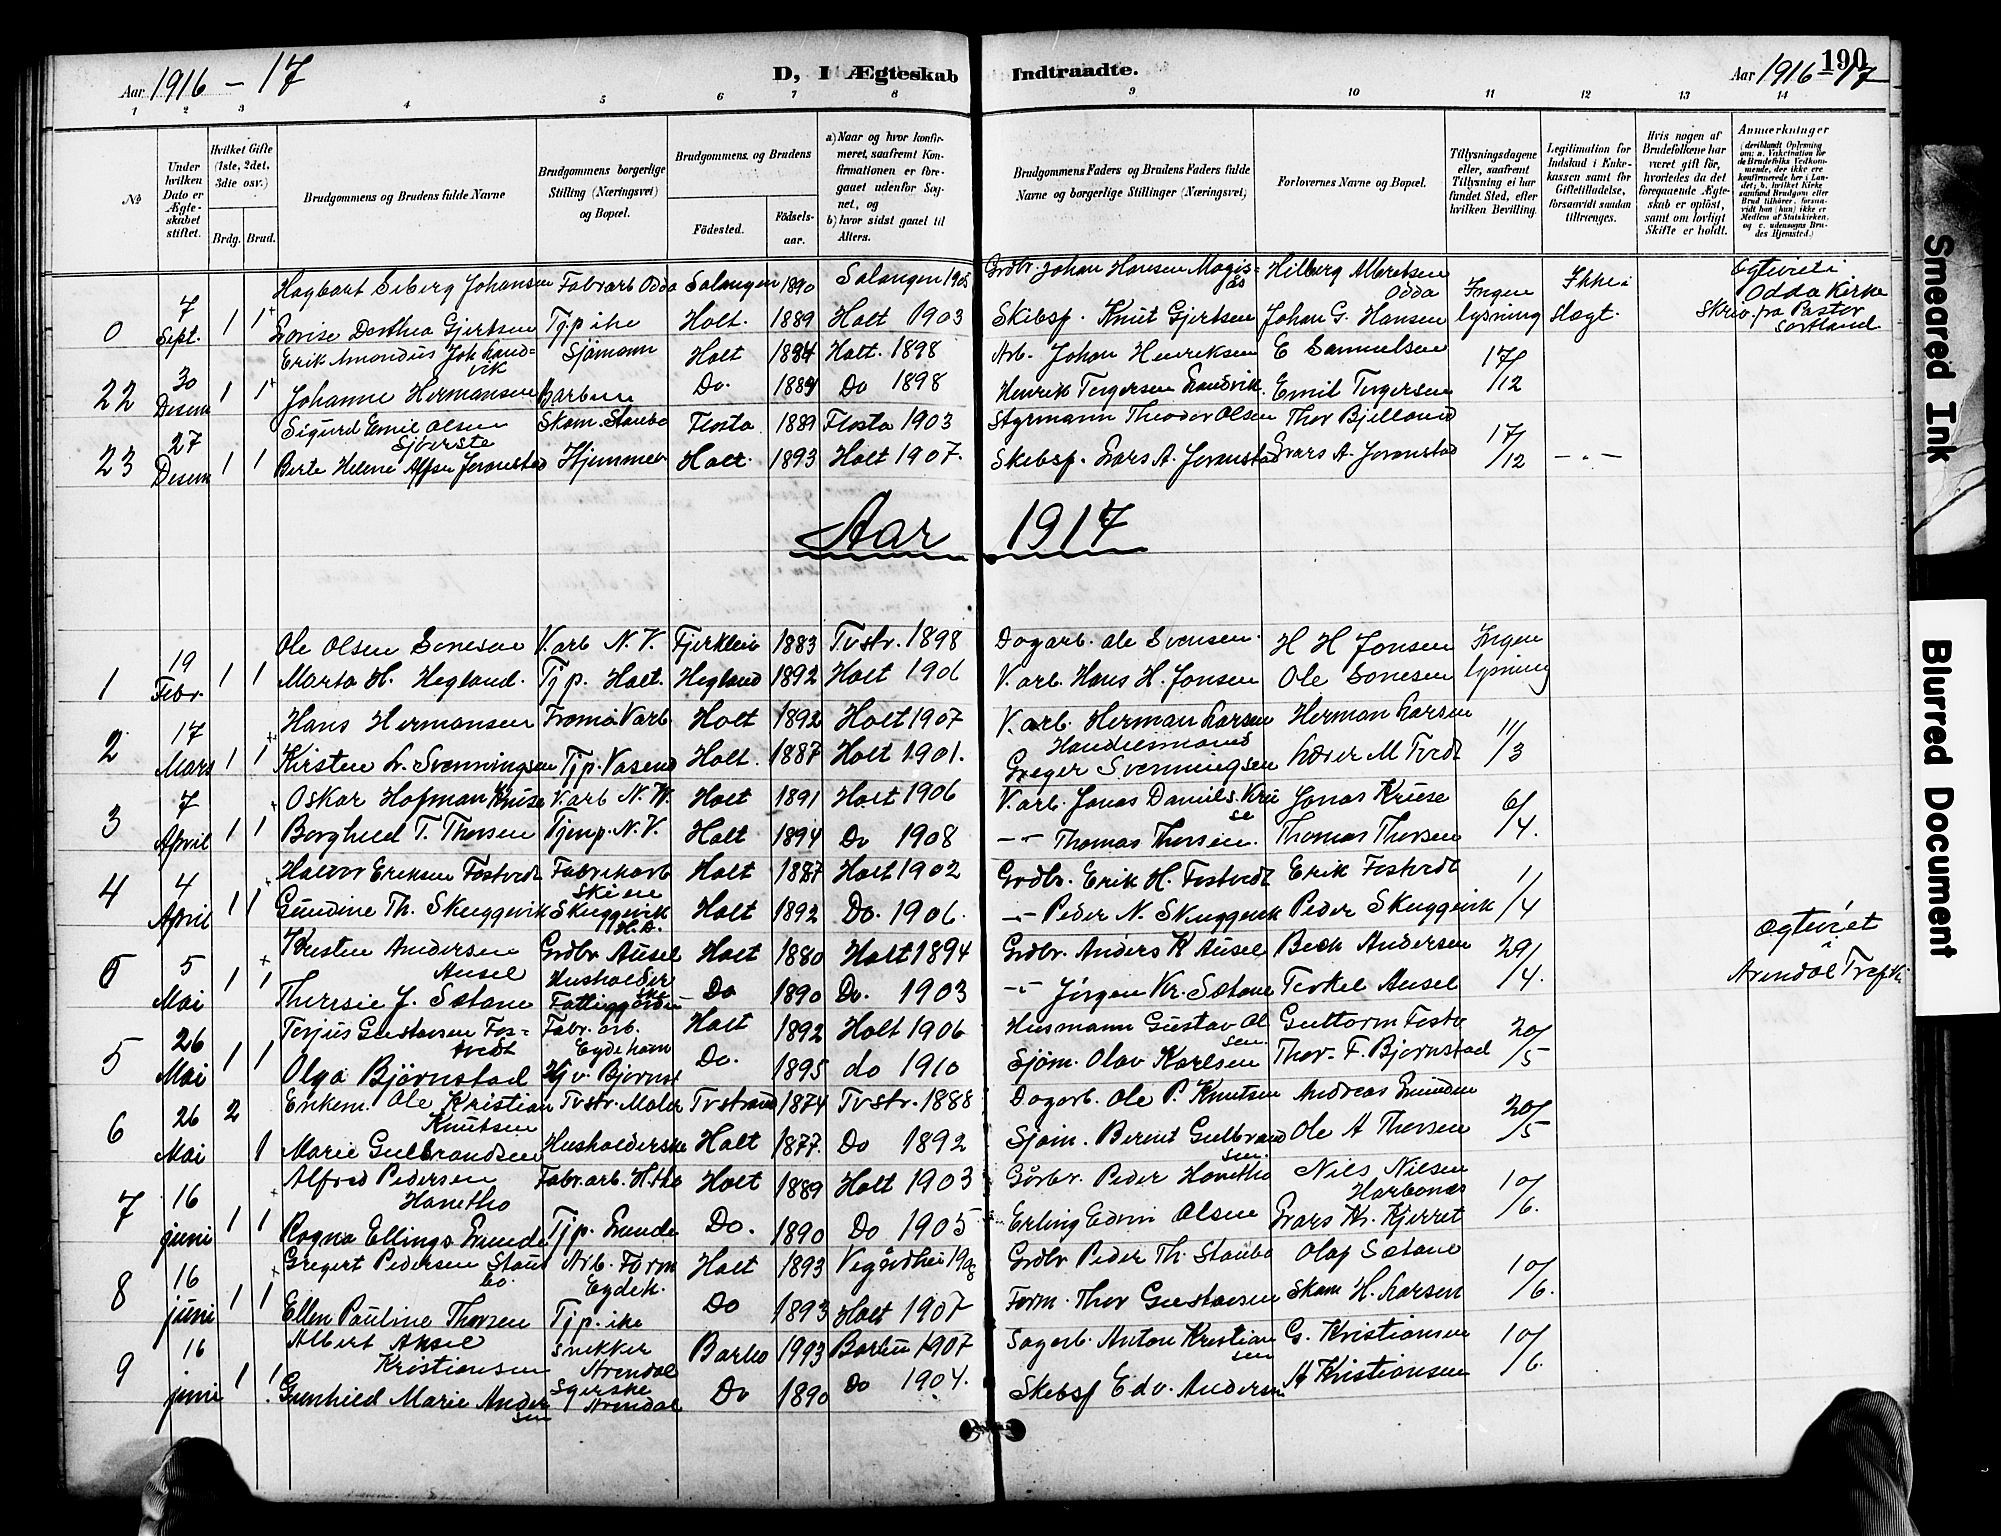 Aar 1916 - 17 D, I Ægteskab Indtraadte. Aar 1916-17 190
1 2 3 4 5 6 7 8 9 10 11 12 13 14
No
Under hvilken Dato er Ægteskabet stiftet.
Hvilket Gifte (1ste, 2det, 3die osv.)
Brdg. Brud.
Brudgommens og Brudens fulde Navne
Brudgommens borgerlige Stilling (Næringsvei) og Bopæl.
Brudgommens og Brudens
Födested. Födselsaar.
a) Naar og hvor konfirmeret, saafremt Konfirmationen er foregaaet udenfor Sognet, og b) hvor sidst gaaet til Alters.
Brudgommens Faders og Brudens Faders fulde Navne og borgerlige Stillinger (Næringsvei)
Forlovernes Navne og Bopæl.
Tillysningsdagene eller, saafremt Tillysning ei har fundet Sted, efter hvilken Bevilling.
Legitimation for Indskud i Enkekassen samt for Giftetilladelse, forsaavidt saadan tiltrænges.
Hvis nogen af Brudefolkene har været gift för, hvorledes da det foregaaende Ægteskab er oplöst, samt om lovligt Skifte er holdt.
Anmerkninger (deriblandt Oplysning om: a. Vakcination for de Brudefolks Vedkommende, der ikke ere konfirmerede her i Landet; b. hvilket Kirkesamfund Brudgom eller Brud tilhörer, forsaavidt han (hun) ikke er Medlem af Statskirken, og c. udensogns Brudes Hjemsted.)
0 7 Sept. 1 1 Hagbart Seberg Johansen Fabrarb Odda Salangen 1890 Salangen 1905 Grdbr. Johan Hansen Hilberg Albretsen Odda Ingen lysning Ikke i Slægt. Egteviet i Odda Kirke
Lovise Dorthea Gjertsen Tjp ike Holt. 1889 Holt 1903 Skibsp. Knut Gjertsen Johan G. Hansen Skriv. fra Pastor Sortland
22 30 Desem 1 1 Erik Amondus Joh Landvik Sjømann Holt 1884 Holt. 1898 Arb. Johan Henriksen E Samuelsen 17/12
Johanne Hermansen Do. 1889 Do 1898 Henrik Tergersen Landvik Emil Tergersen
23 27 Desem 1 1 Sigurd Emil Olsen Skom. Staubø Flosta 1889 Flosta 1903 Styrmann Theodor Olsen Thor Bjelland 17/12
Berte Helene Hjemmev Holt. 1893 Holt 1907. Skibsf. Lars A. Joranstad Lars A. Joranstad
Aar 1917
1 19 Febr. 1 1 Ole Olsen Sonesen V. arb N. V. 1883 Tvstr. 1898 Dagarb. Ole Svensen. H H Jonsen Ingen lysning
Marta H. Hegland. Tjp. Holt. Hegland 1892 Holt 1906 V. arb. Hans H. Jonsen Ole Sonesen
2 17 Mars 1 1 Hans Hermansen Tromø Varb Holt 1892 Holt 1907 V. arb. Herman Larsen Herman Larsen 11/3
Kirsten L. Svenningsen Tjp. Vasend Holt. 1887 Holt 1901. Handelsmand Greger Svenningsen M Tvedt
3 7 April 1 1 Oskar Hofman Kruse V. arb N. V. Holt 1891 Holt 1906 V. arb. Jonas Daniels. Kruse Jonas Kruse 6/4.
Borghild T. Thorsen Tjenp. N. V. Holt 1894 Do 1908 -"- Thomas Thorsen. Thomas Thorsen
4 4 April 1 1 Halvor Eriksen Fostvedt Fabrikarb Skien Holt 1887 Holt 1902 Grdbr. Erik H. Fostvedt Erik Fostvedt 1/4
Gundine Th. Skuggevik Skuggevik Holt 1892 Do. 1906. -"- Peder N. Skuggevik Peder Skuggevik
5 5 Mai 1 1 Kristen Andersen Ausel Grdbr Ausel Holt 1880 Holt 1894 Grdbr. Anders K Ausel Andersen 29/4. Egteviet i Arendal Tref.ki
Theresie J. Sætane Husholderske Fattiggården Do 1890 Do. 1903 -"- Jörgen Kr. Sætane Terkel Ausel
5 26 Mai 1 1 Terjus Gustavsen Fostvedt Fabr. arb. Eydehavn Holt 1892 Holt 1906 Husmann Gustav Olsen. Guttorm Fostv 20/5
Olga Björnstad Hj v. Bjørnst Do. 1895 do 1910 Sjöm. Olav Karlsen Thor. F. Bjørnstad
6 26 Mai 2 1 Enkem. Ole Kristian Knutsen Tvstr. Maler Tvstrand 1874 Tvstr. 1888 Dagarb. Ole P. Knutsen Andreas Lunden 20/5
Marie Gulbrandsen Husholderske Holt 1877. Do 1892 Sjöm. Berent Gulbrandsen. Ole A Thorsen
7 16 juni 1 1 Alfred Pedersen Hanetho Fabr. arb. H.tho Holt 1889 Holt 1903 Gårbr. Peder Hanetho Nils Nilsen 10/6.
Ragna Ellings Lunde Tjp. Lunde Do. 1890 Do 1905 Erling Edvin Olsen Lars Kr. Kjerret
8 16 juni 1 1 Gregert Pedersen Staubo. Arb. Form Eydeh. Holt 1893 Vegårdhei 1908 Grdbr Peder Th. Staubø Olaf Sætane 10/6.
Ellen Pauline Thorsen Tjp. ike Do 1893 Holt 1907 Form. Thor Gustavsen Skom H. Larsen
9 16 juni 1 1 Albert Aksel Kristiansen Snekker Arendal Barbo 1993 Barbu 1907 Sagarb. Anton Kristiansen G. Kristiansen 10/6.
Gunhild Marie Andersen Syerske Arendal Do 1890 Do 1904. Skibsf Edv. Andersen A Kristiansen
Smeared Ink
Blurred Document